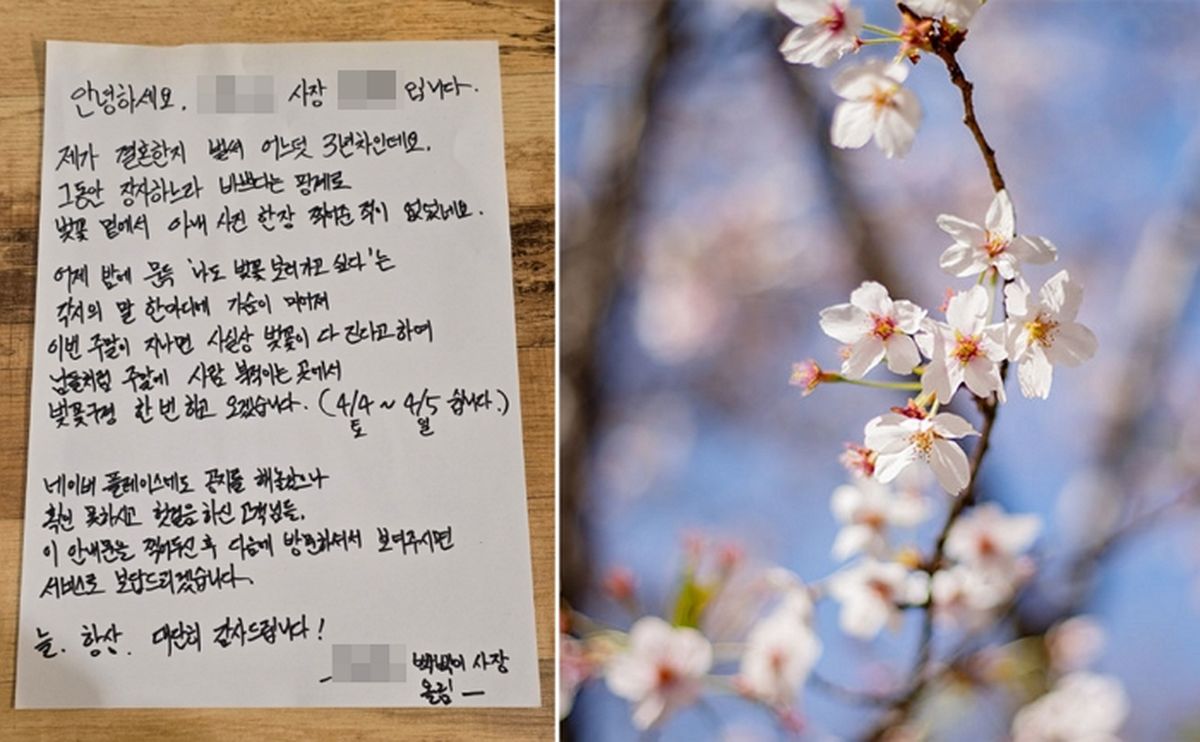 안녕하세요. 사장 입니다.
제가 결혼한지 벌써 어느덧 3년차인데요.
그동안 장사하느라 바쁘다는 핑계로
벚꽃 밑에서 아내 사진 한장 찍어준 적이 없었네요.
어제 밤에 문득 '나도 벚꽃 보러가고 싶다'는
각시의 말 한마디에 가슴이 미어져
이번 주말이 지나면 사실상 벚꽃이 다 진다고하여
남들처럼 주말에 사람 북적이는 곳에서
벚꽃구경 한 번 하고 오겠습니다. (4/4 ~ 4/5 쉽니다.)
토 일
네이버 플레이스에도 공지를 해놓았으나
확인 못하시고 헛걸음 하신 고객님들.
이 안내문을 찍어두신 후 다음에 방문하셔서 보여주시면
서비스로 보답드리겠습니다.
늘. 항상. 대단히 감사드립니다!
사장
올림